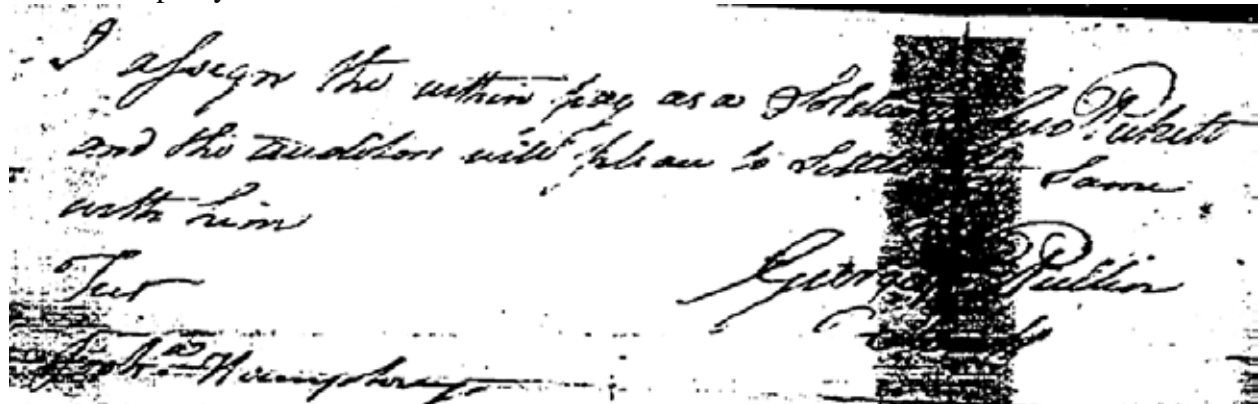 I assign the within pay as a Soldier to Geo Pickett
and the auditors will please to Settle the Same
with him
Test
George Pullin
Humphrey